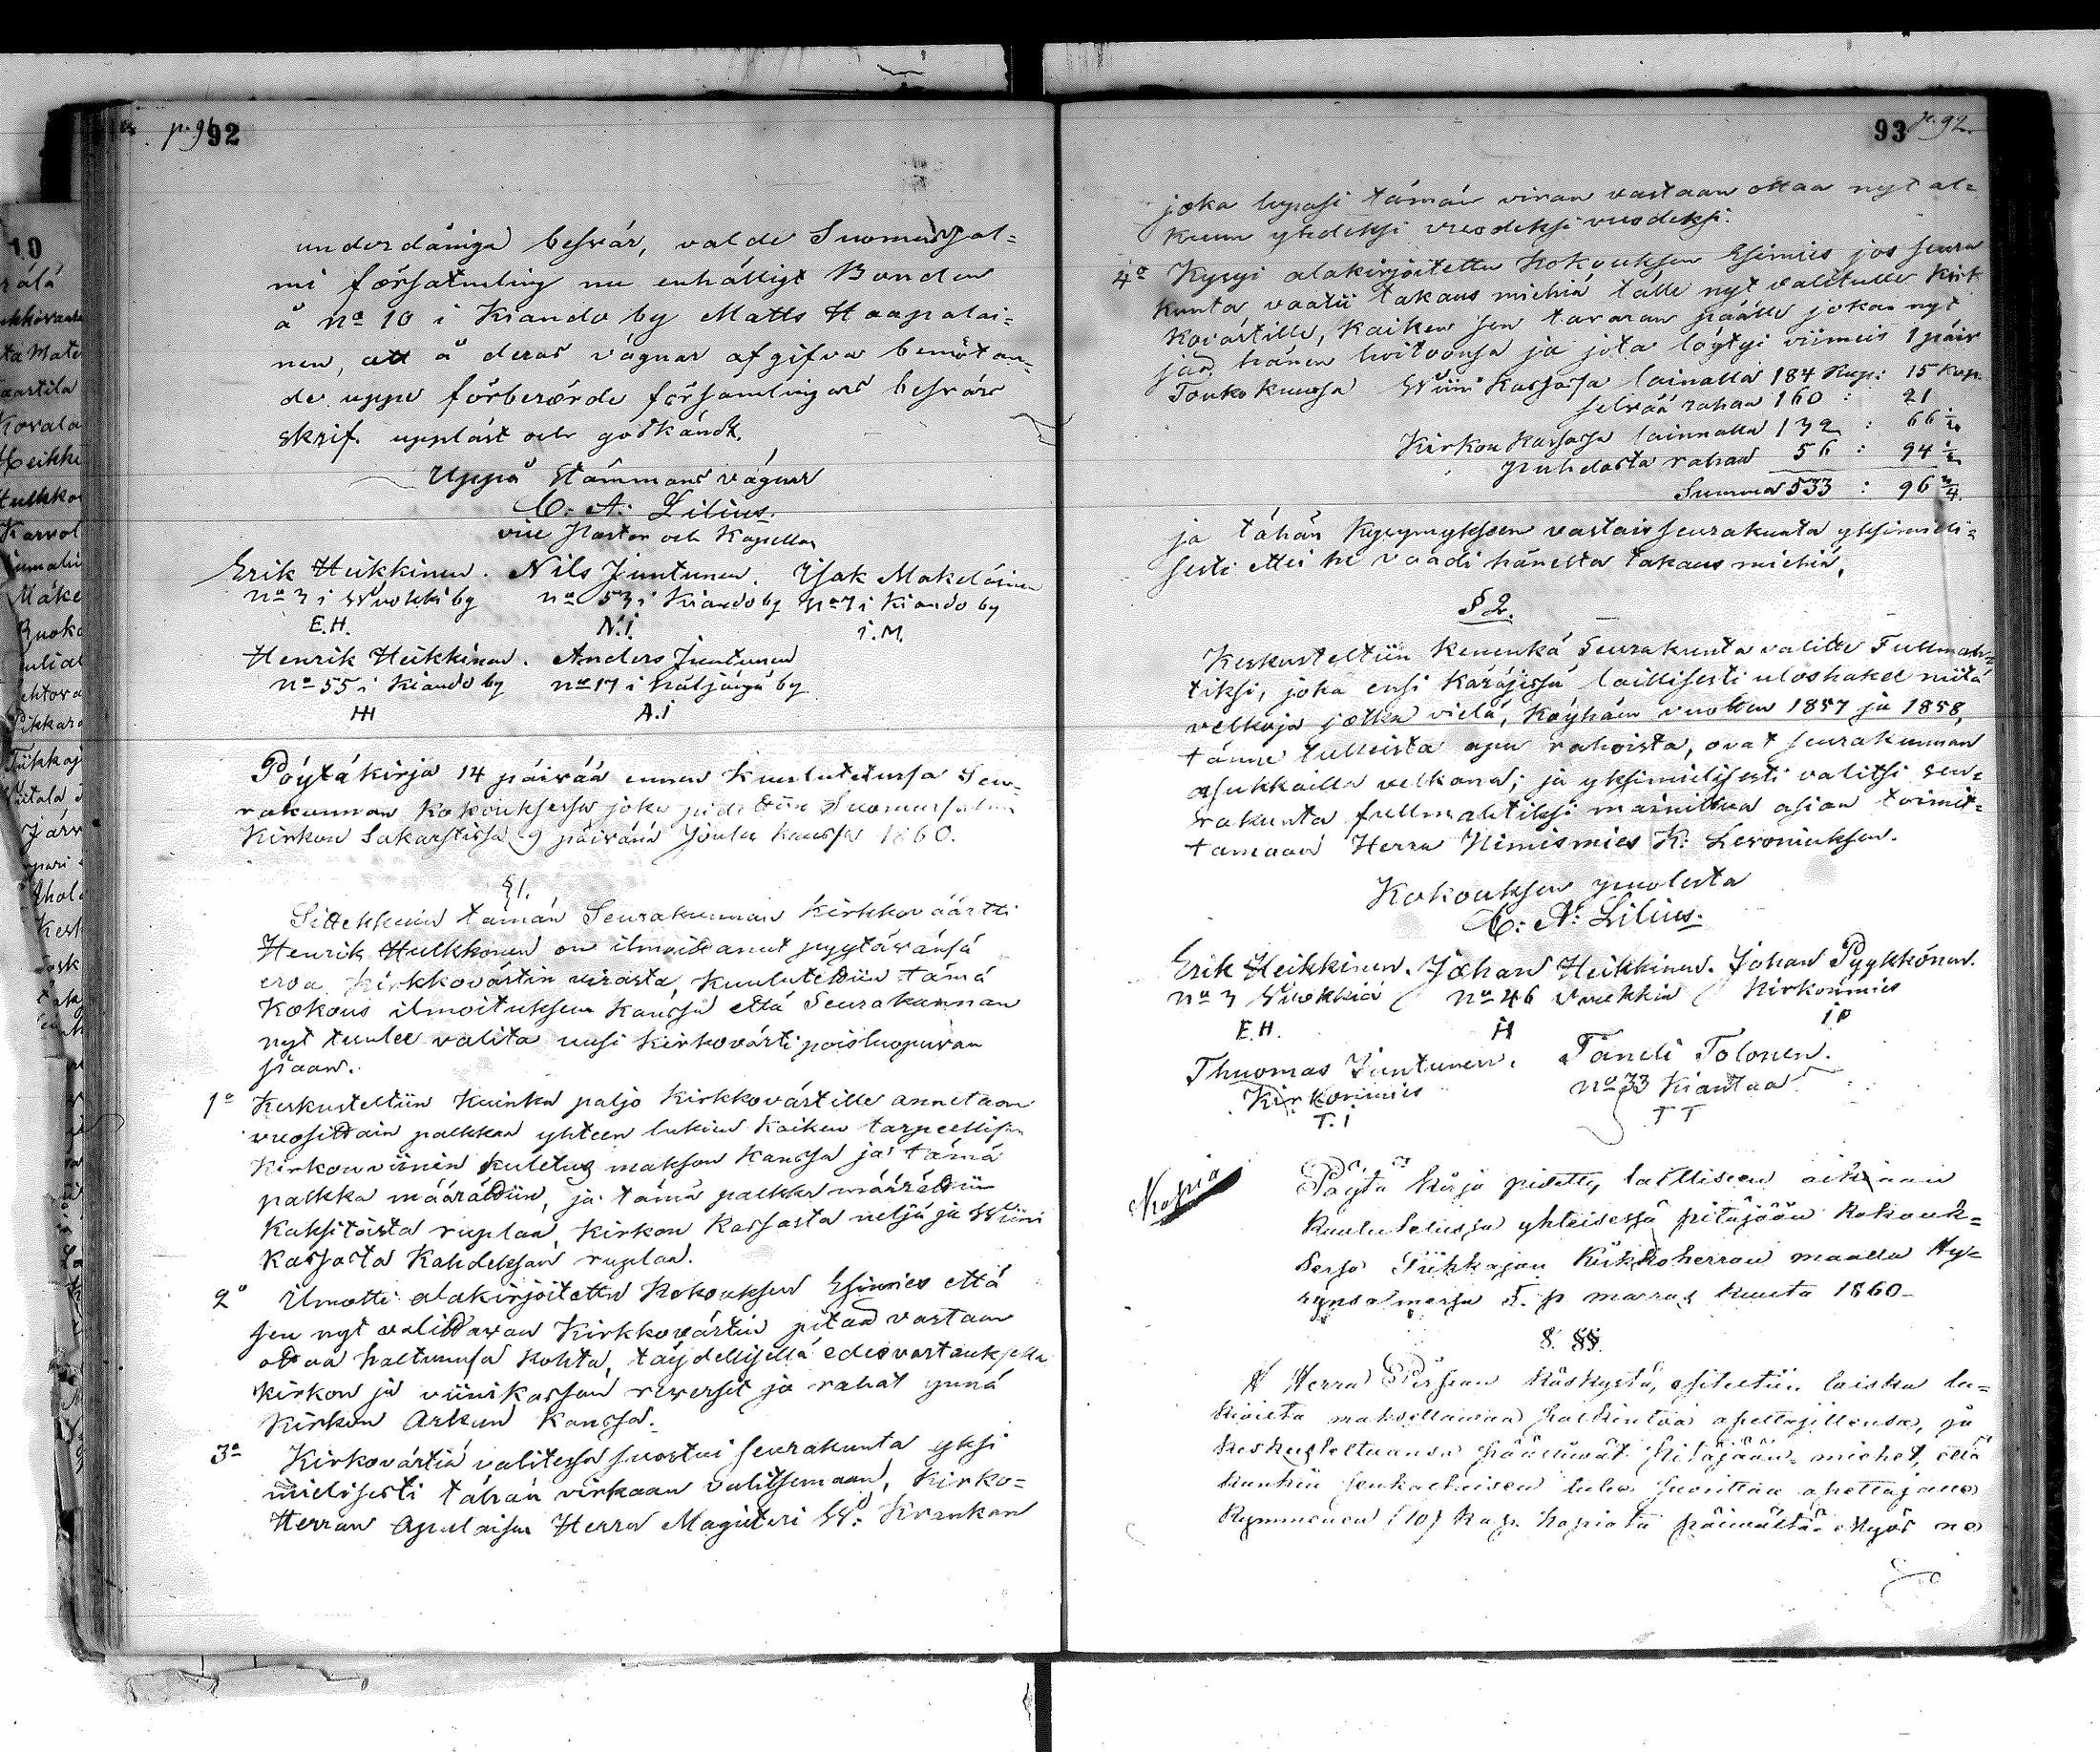 p. 91 92
underdåniga besvär, valde Suomussal=
mi församling nu enhälligt Bonden
å No 10 i Kiando by Matts Haapalai=
nen, att å deras vägnar afgifva bemötan=
de uppå förberörde församlingens besvärs
skrif. uppläst och godkändt.
Uppå Stämmans vägnar
C. A. Lilius.
vice Pastor och Kapellan
Erik Heikkinen. Nils Juntunen. Isak Makeläinen
No 3 i Wuokki by No 53 i Kiando by No 7 i Kiando by
E.H. N.i i.M.
Henrik Heikkinen. Anders Juntunen
No 55 i Kiando by No 17 i Näljängä by
HH A.i
Pöytäkirja 14 päivää ennen kuulutetussa Seu-
rakunnan Kokouksessa joka pidettiin Suomussalmen
Kirkon Sakarstissa 9 päivänä Joulu kuussa 1860.
§1.
Sittekkuin tämän Seurakunnan Kirkkoväärtti
Henrik Hulkkonen on ilmoittanut pyytävänsä
eroa Kirkkovärtin virasta, kuulutettiin tämä
Kokous ilmoituksen kanssa että Seurakunnan
nyt tuulee valita uusi kirkovärti poisluopuvan
siaan.
1o Keskusteltiin kuinka paljo Kirkkovärtille annetaan
vuosittain palkkaa yhteen lukien kaiken tarpeellisen
Kirkonviinin kuletus makson kanssa ja tämä
palkka määrättiin, ja tämä palkka määrättiin
Kaksitoista ruplaa, Kirkon Kassasta neljä ja Wiini
Kassasta Kahdeksan ruplaa.
2o Ilmotti alakirjoitettu Kokouksen Esimies että
sen nyt valittavan Kirkkovärtin pitää vastaan
ottaa haltuunsa kohta, täydellisellä edesvastauksella
Kirkon ja viinikassan reverset ja rahat ynnä
Kirkon Arkun Kanssa.
3o Kirkovärtiä valitessa suostui seurakunta yksi
mielisesti tähän virkaan valitsemaan, Kirko=
Herran Apulaisen Herra Magisteri W. Krankan
93 p. 92.
joka lupasi tämän viran vastaan ottaa nyt al=
kuun yhdeksi vuodeksi vuodeksi.
4o Kysyi alakirjoitettu Kokouksen Esimies jos seura
kunta vaatii takaus miehiä tälle nyt valitulle Kirk
kovärtille, kaiken sen tavaran päälle joka nyt
jää hänen hoitoonsa ja jota löytyi viimeis 1 päiv
Toukokuussa Wiini Kassassa lainalla 184 Rup: 15 kop.
selvää rahaa 160 : 21
Kirkon Kassassa lainnalla 132 : 66 1/4
puhdasta rahaa 56 : 94 1/2
Summa 533 : 96 3/4.
ja tähän Kysymykseen vastais seurakunta yksimieli=
sesti ettei he vaadi hänestä takaus miehiä.
§ 2.
Keskusteltiin kenenkä Seurakunta valitte Fullmah=
tiksi, joka ensi Käräjissä laillisesti uloshakee niitä
velkoja jotka vielä, Köyhäin vuotten 1857 ja 1858,
tänne tulleista apu rahoista, ovat seurakunnan
asukkailla velkana; ja yksimielisesti valitsi seu=
rakunta fullmahtiksi mainittua asian toimit=
tamaan Herra Nimismies K: Leroniuksen.
Kokouksen puolesta
C. A: Lilius.
Erik Heikkinen. Johan Heikkinen. Johan Pyykkönen.
No 3 Wuokkiä No 46 Vuokkia Kirkonmies
E.H. iH i P
Thuomas Juntunen. Taneli Tolonen.
Kirkonmies No 33 Kiantaa
T. i T T
Kopia
Pöytä Kirja pidetty, lailliseen aikaan
Kuulutetussa yhteisessä pitäjään kokouk=
sessa Kirkkoherran maalla Hy=
rynsalmessa 5. p marras kuuta 1860
8 §§.
Herra käskystä, esiteltiin laiska lu=
ja
Keskusteltuansa päättivät Pitäjään miehet, että
Kymmenen (10) kop. hopiata päivältä Myös ne